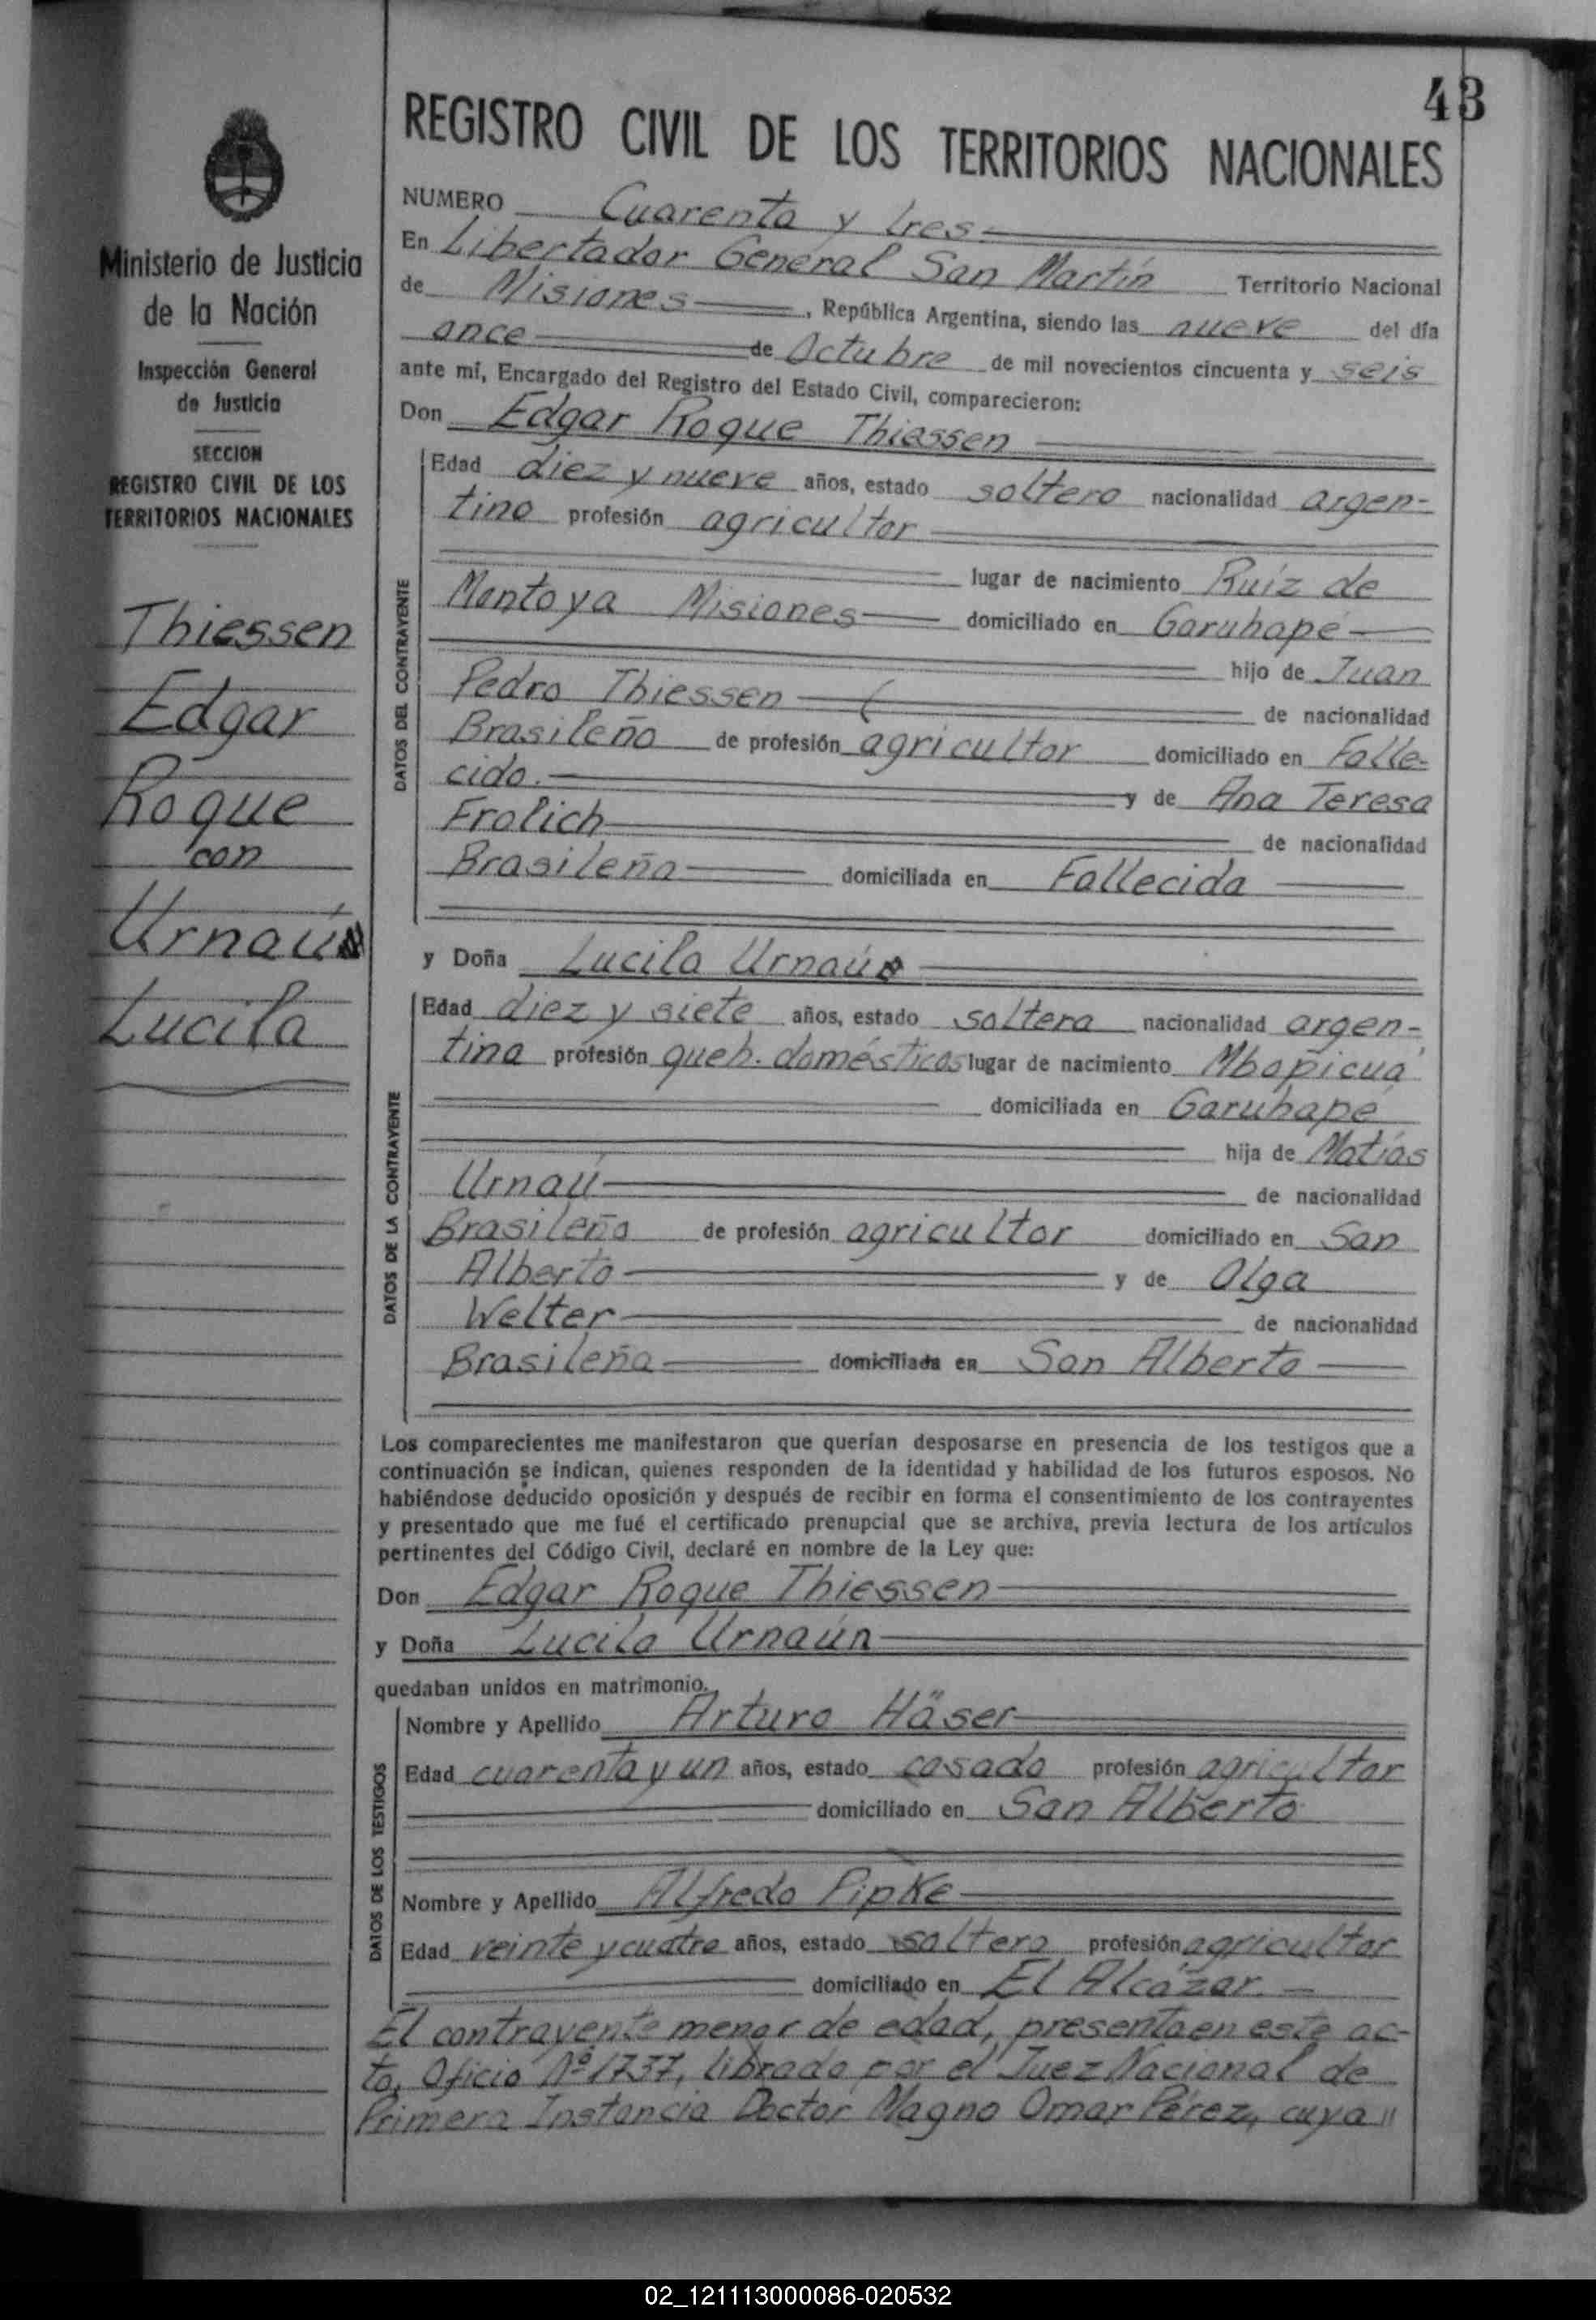 43
Ministerio de Justicia
de la Nación
Inspección General
de Justicia
SECCION
REGISTRO CIVIL DE LOS
TERRITORIOS NACIONALES
Thiessen
Edgar
Roque
con
Urnaú
Lucila
REGISTRO CIVIL DE LOS TERRITORIOS NACIONALES
NUMERO Cuarenta y tres
En Libertador General San Martín Territorio Nacional
de Misiones, República Argentina, siendo las nueve del día
once de Octubre de mil novecientos cincuenta y seis
ante mí, Encargado del Registro del Estado Civil, comparecieron:
Don Edgar Roque Thiessen
DATOS DEL CONTRAYENTE
Edad diez y nueve años, estado soltero nacionalidad argen-
tino profesión agricultor
lugar de nacimiento Ruiz de
Montoya Misiones domiciliado en Garuhapé
hijo de Juan
Pedro Thiessen de nacionalidad
Brasileño de profesión agricultor domiciliado en Falle-
cido. y de Ana Teresa
Frolich de nacionalidad
Brasileña domiciliada en Fallecida
y Doña Lucila Urnaú
DATOS DE LA CONTRAYENTE
Edad diez y siete años, estado soltera nacionalidad argen-
tina profesión queh. domésticos lugar de nacimiento Mbopicuá
domiciliada en Garuhapé
hija de Matías
Urnaú de nacionalidad
Brasileño de profesión agricultor domiciliado en San
Alberto y de Olga
Welter de nacionalidad
Brasileña domiciliada en San Alberto
Los comparecientes me manifestaron que querían desposarse en presencia de los testigos que a
continuación se indican, quienes responden de la identidad y habilidad de los futuros esposos. No
habiéndose deducido oposición y después de recibir en forma el consentimiento de los contrayentes
y presentado que me fué el certificado prenupcial que se archiva, previa lectura de los artículos
pertinentes del Código Civil, declaré en nombre de la Ley que:
Don Edgar Roque Thiessen
y Doña Lucila Urnaún
quedaban unidos en matrimonio.
DATOS DE LOS TESTIGOS
Nombre y Apellido Arturo Häser
Edad cuarenta y un años, estado casado profesión agricultor
domiciliado en San Alberto
Nombre y Apellido Alfredo Pipke
Edad veinte y cuatro años, estado soltero profesión agricultor
domiciliado en El Alcázar.
El contrayente menor de edad, presenta en este ac-
to, Oficio Nº 1737, librado por el Juez Nacional de
Primera Instancia Doctor Magno Omar Pérez, cuya "
02_121113000086-020532